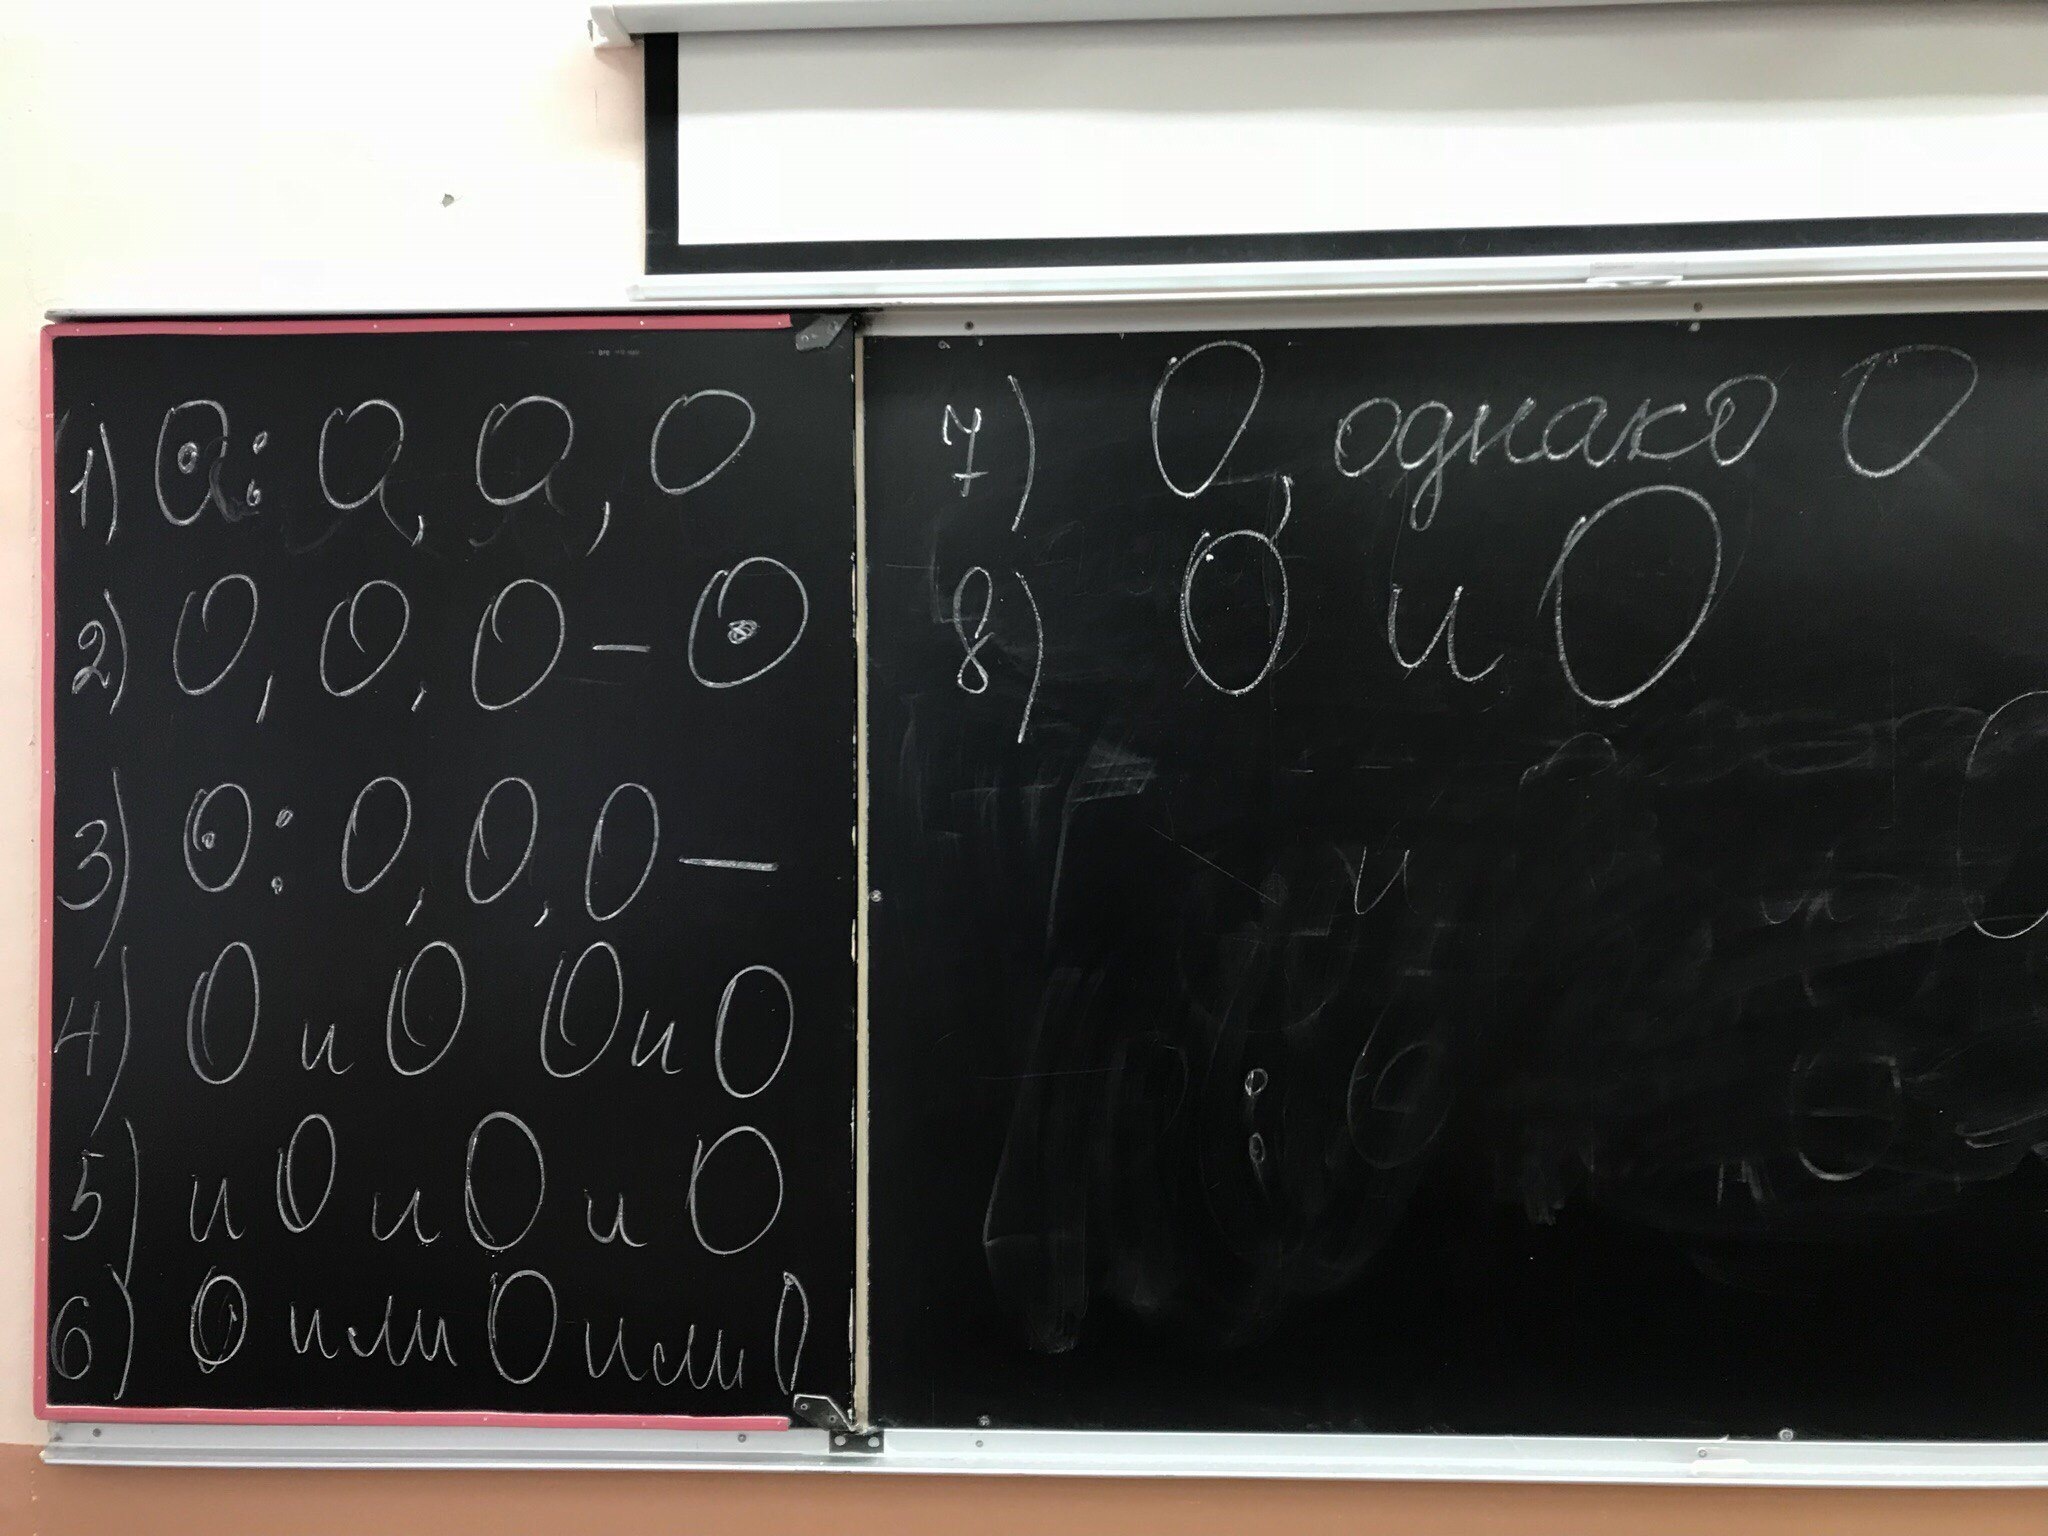 1) ⊙: О, О, О
2) О, О, О – ⊙
3) ⊙: О, О, О —
4) О и О О и О
5) и О и О и О
6) О или О или О
7) О, однако О
8) О и О
и
и
: